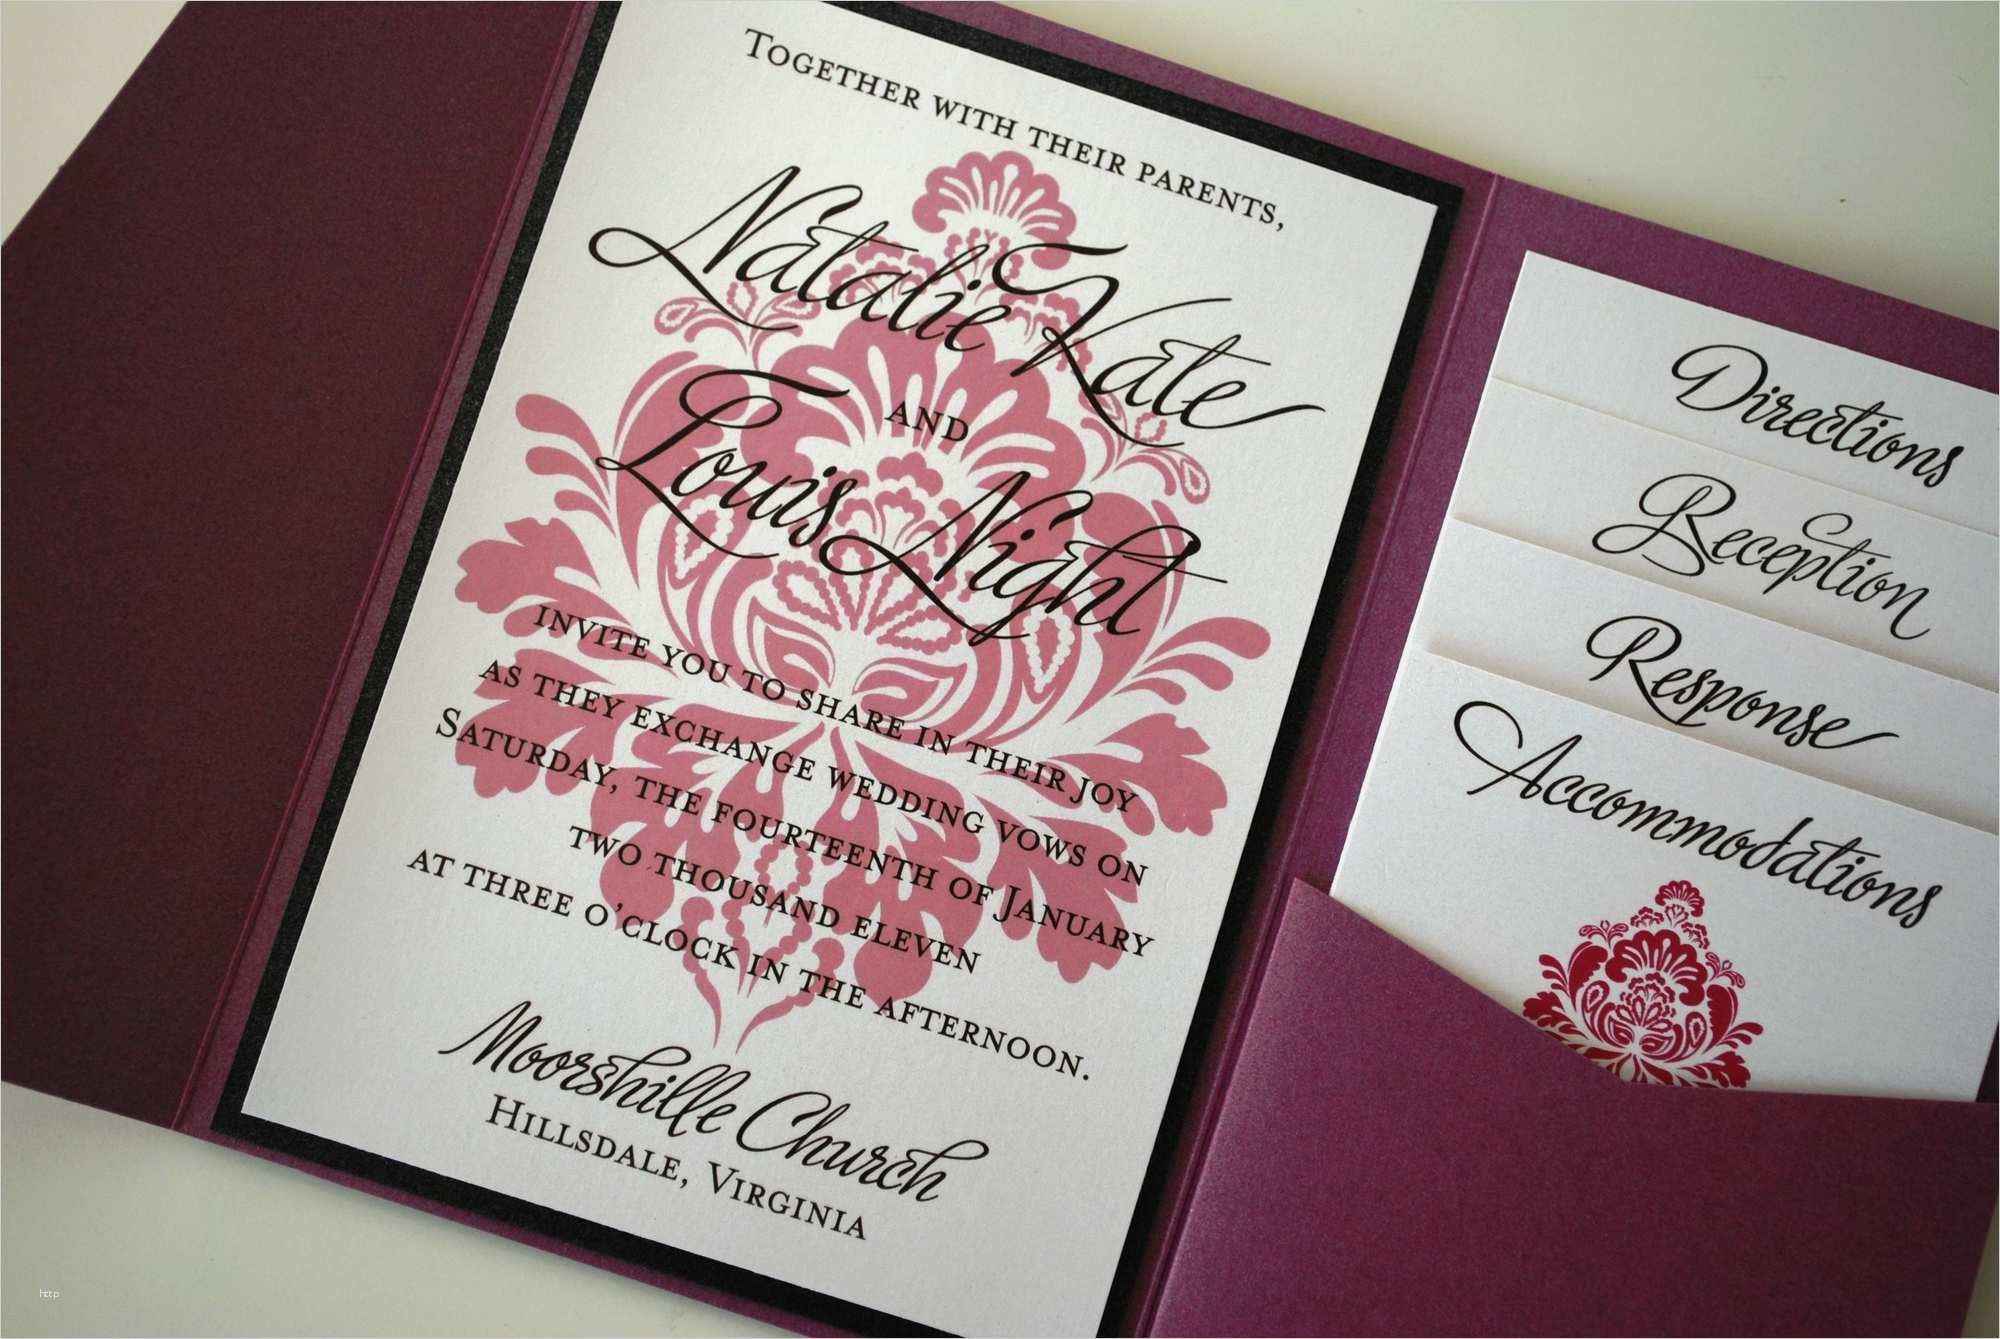 Together with their parents,
Natalie Kate
and
Louis Night
invite you to share in their joy
as they exchange wedding vows on
Saturday, the fourteenth of January
two thousand eleven
at three o'clock in the afternoon.
Moorshille Church
Hillsdale, Virginia
Directions
Reception
Response
Accommodations
http